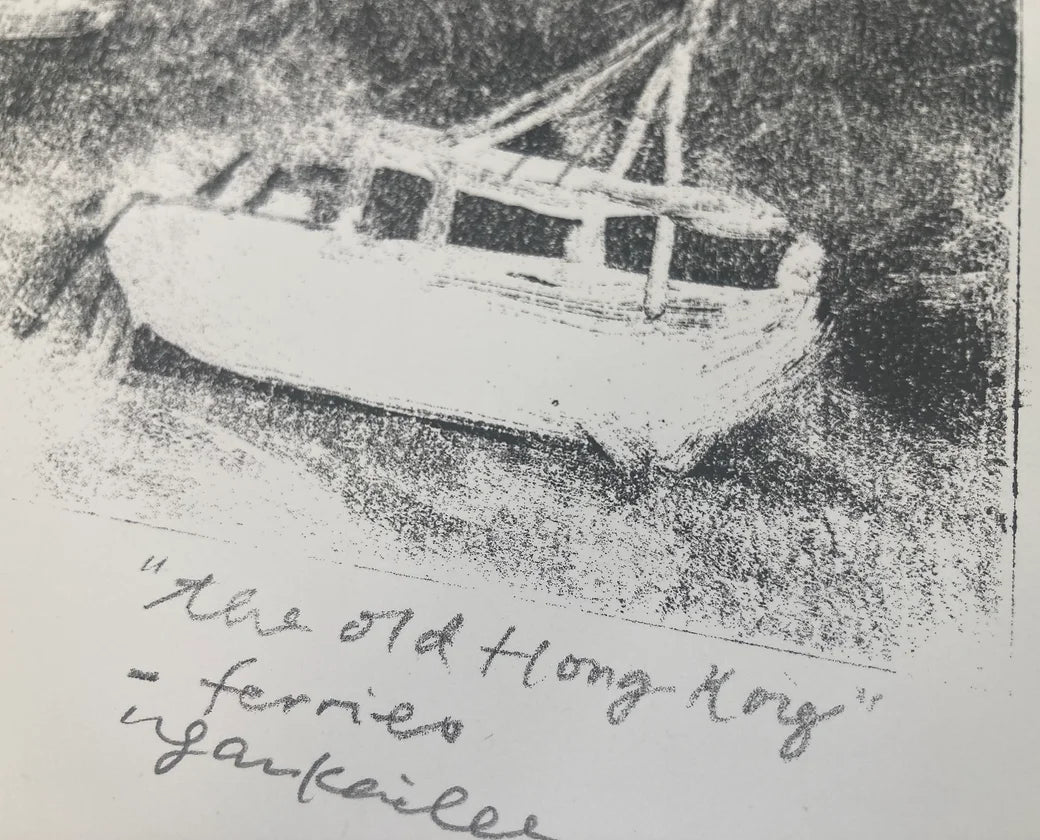 "the old Hong Kong"
- ferries
ngankailee